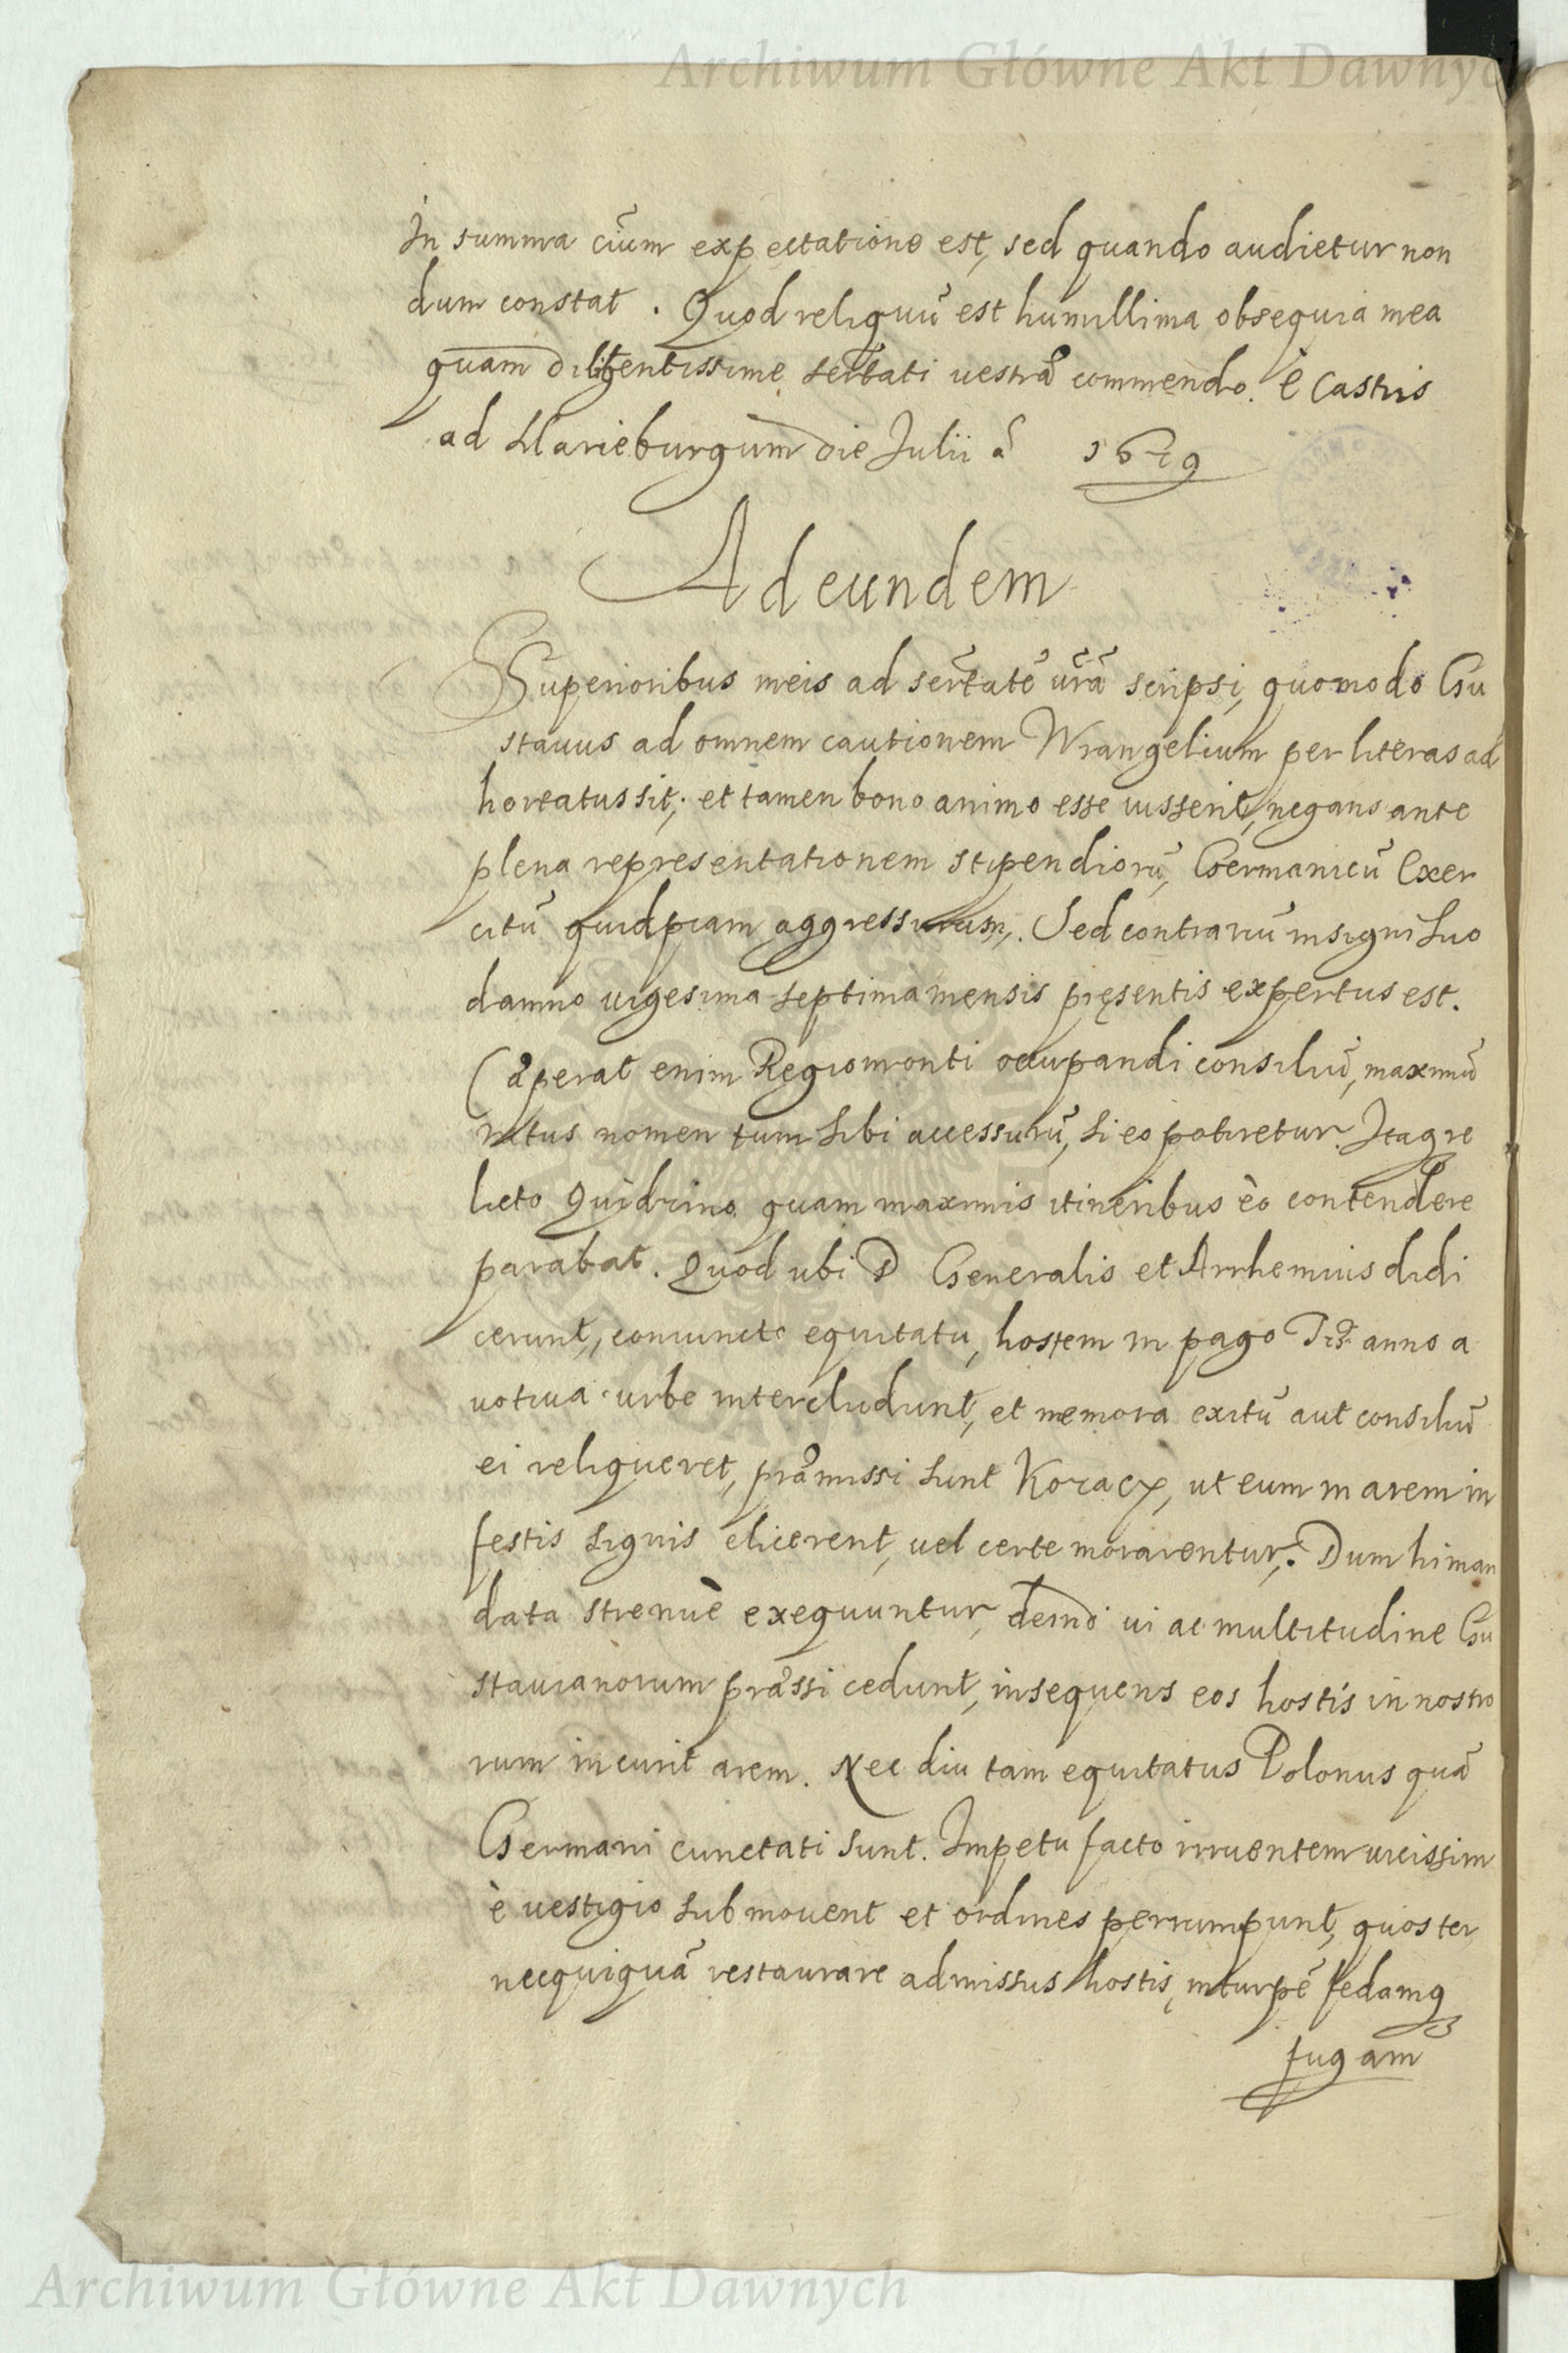 Archiwum Główne Akt Dawnych
In summa cium expectatione est, sed quando audietur non
dum constat. Quod reliquū est humillima obsequia mea
quam diligentissime sertati vestræ commendo. è Castris
ad Marieburgum die Julii aº 1629
Ad eundem
Superioribus meis ad sertatē vrã scripsi, quomodo Gu
stauus ad omnem cautionem Wrangelium per literas ad
hortatus sit; et tamen bono animo esse iusserit, negans ante
plena representationem stipendiorū, Germanicū Exer
citū quidpiam aggressurum. Sed contrariū insigni suo
damno uigesima septima mensis pręsentis expertus est.
Cæperat enim Regiomonti occupandi consiliū, maximū
ratus nomen tum sibi accessurū, si eo potiretur. Itaq re
licto Quidzino quam maximis itineribus èo contendere
parabat. Quod ubi D Generalis et Arrhemius didi
cerunt, coniuncto equitatu, hostem in pago anno a
uotiua urbe intercludunt, et ne mora exitū aut consiliū
ei reliqueret, præmissi sunt Kozacy, ut eum in arem in
festis signis elicerent, uel certe morarentur. Dum hi man
data strenuè exequuntur, demō ui ac multitudine Gu
stauianorum præssi cedunt, insequens eos hostis in nostro
rum incurit arem. Nec diu tam equitatus Polonus quã
Germani cunctati sunt. Impetu facto irruentem uicissim
è uestigio submouent et ordines perrumpunt, quos ter
necquiquã restaurare admissus hostis, in turpē fedamq
fugam
Archiwum Główne Akt Dawnych